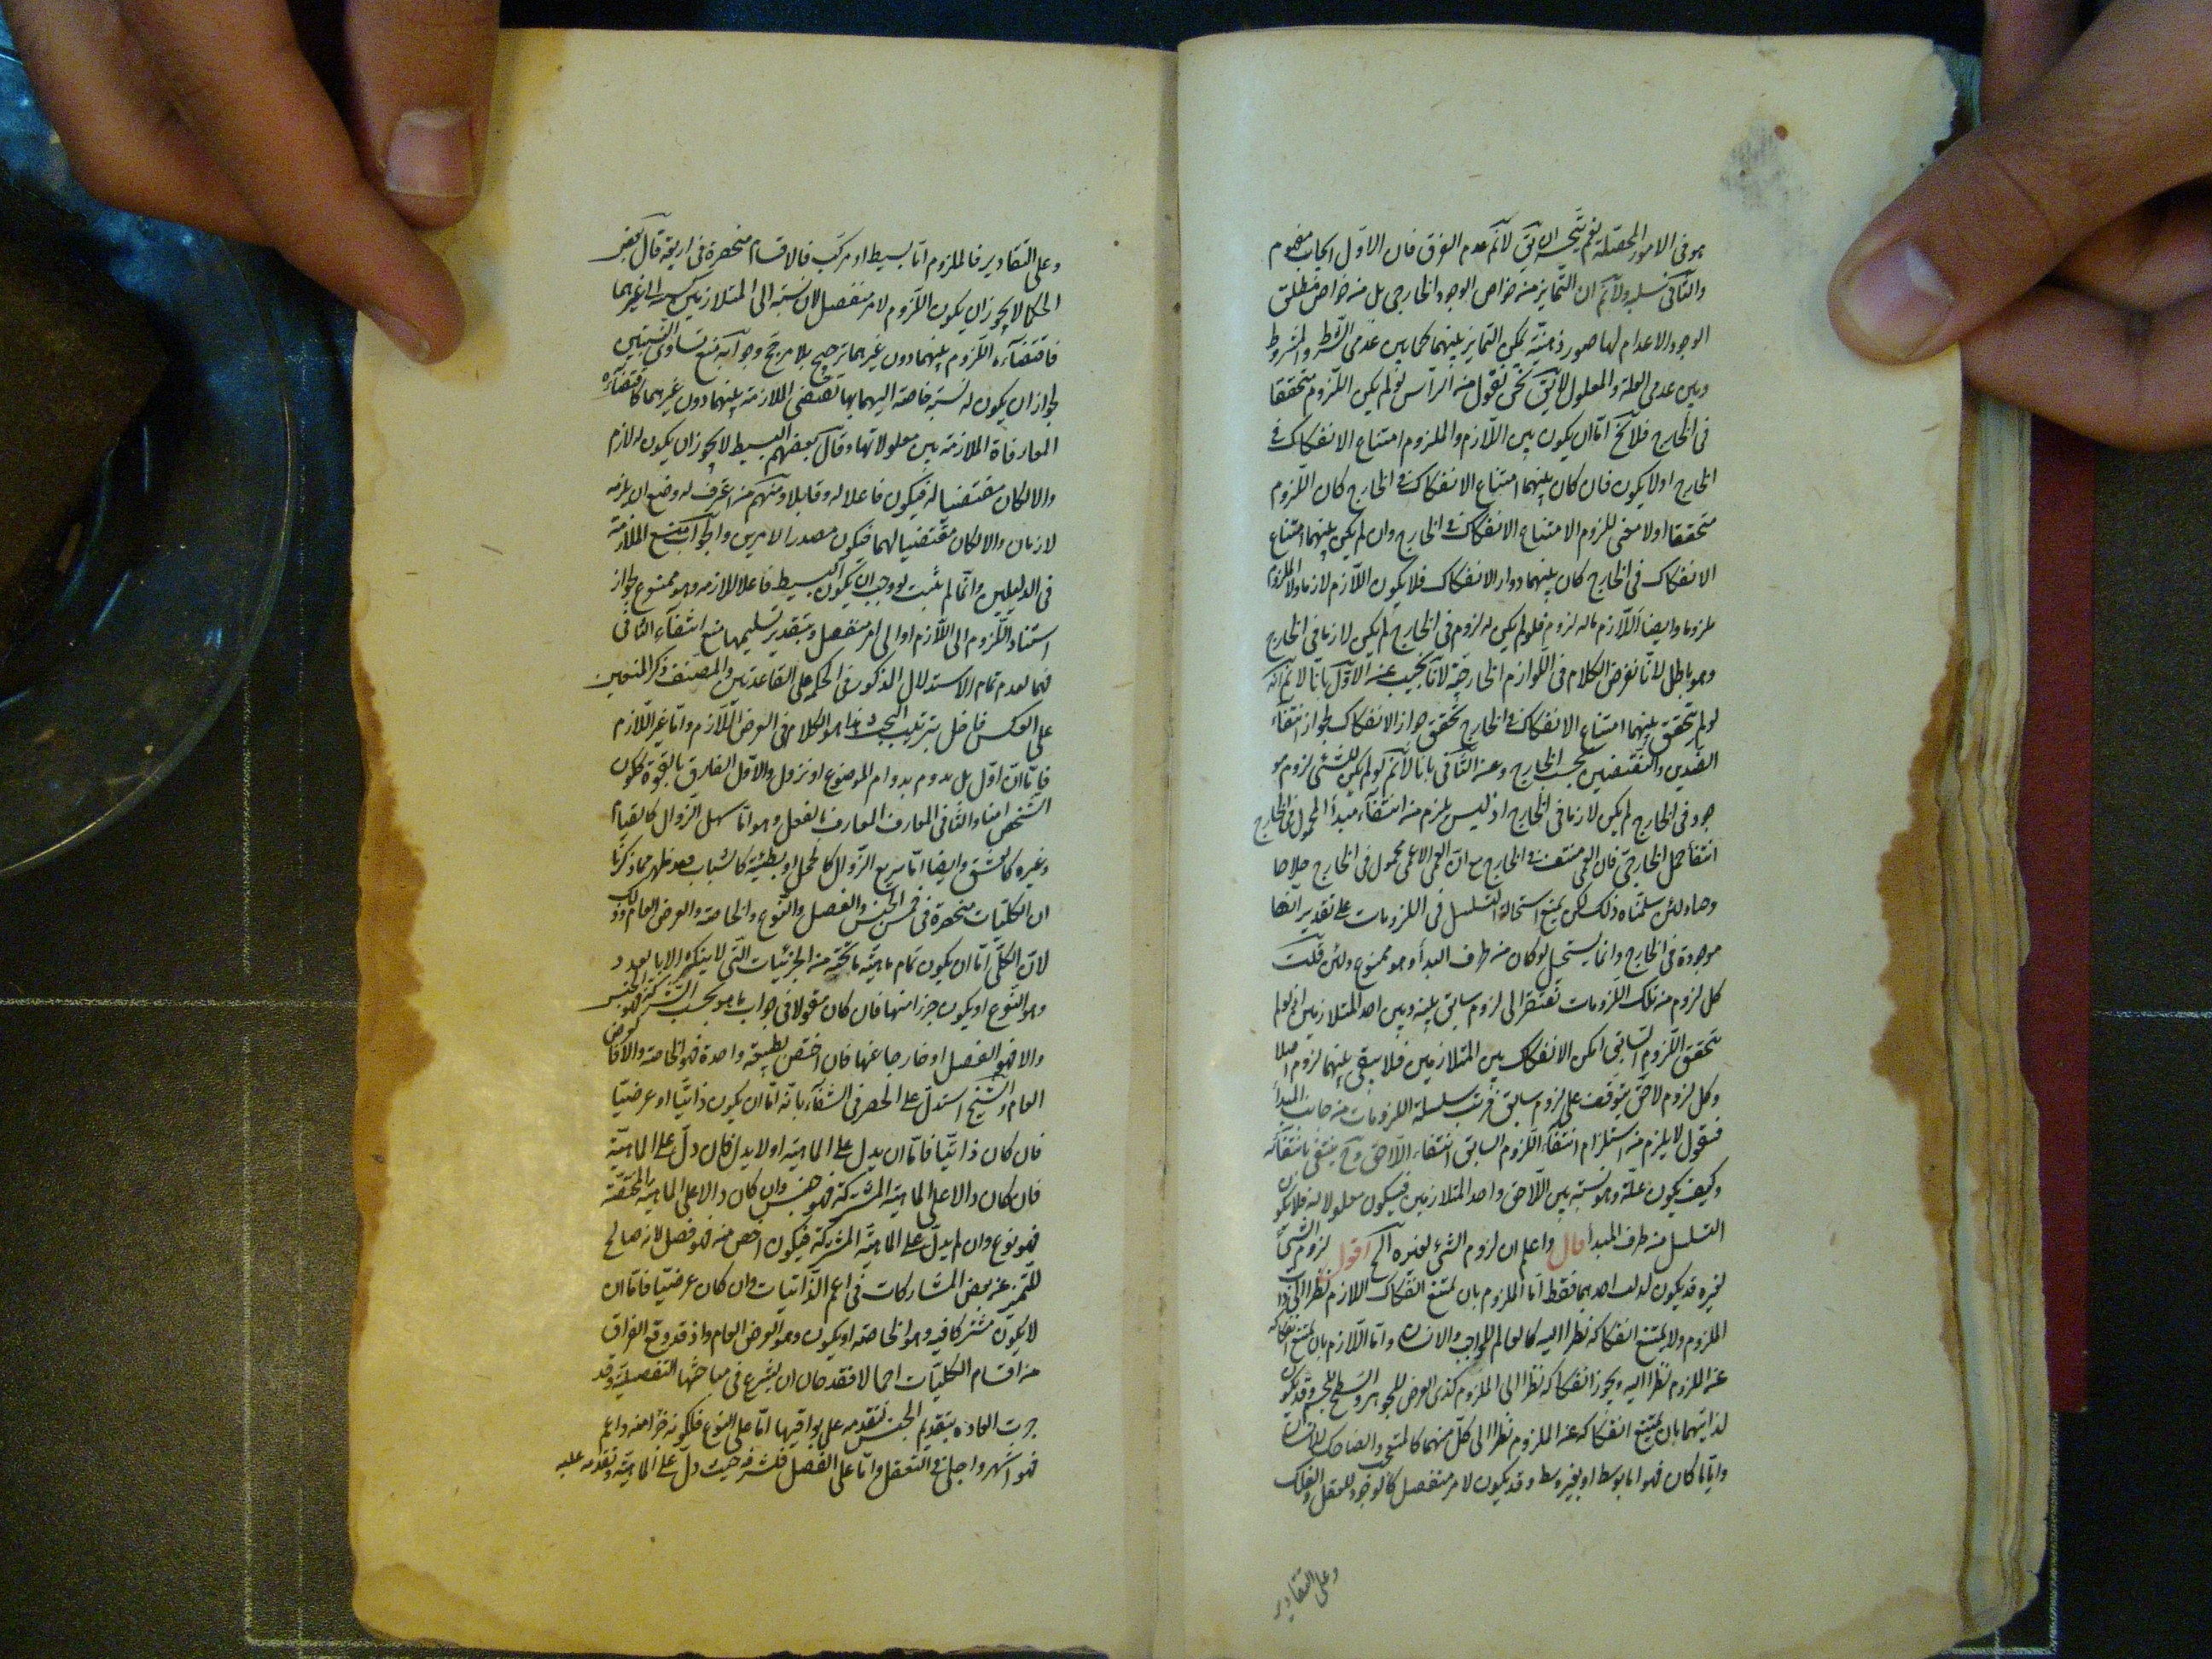 هو فى الامور المحصلة نعم يتجه ان يق لانم عدم الفرق فان الاول ايجاب مفهوم
والثانى سلبه ولانم ان التمايز من خواص الوجود الخارجى بل من خواص مطلق
الوجود الاعدام لها صور ذهنية يمكن التمايز بينهما كما بين عدمى الشرط والمشروط
وبين عدمى العلة والمعلول لايق نحن نقول من الرأس لو لم يكن اللزوم متحققا
فى الخارج فلا يخ اما ان يكون بين اللازم والملزوم امتناع الانفكاك فى
الخارج اولا يكون فان كان بينهما امتناع الانفكاك فى الخارج كان اللزوم
متحققا اولا معنى للزوم الا امتناع الانفكاك فى الخارج وان لم يكن بينهما امتناع
الانفكاك فى الخارج كان بينهما جواز الانفكاك فلا يكون اللازم لازما ولا الملزوم
ملزوما وايضا اللازم ماله لزوم فلو لم يكن له لزوم فى الخارج لم يكن لازما فى الخارج
وهو باطل لانا نفرض الكلام فى اللوازم الخارجية لانا نجيب عن الاول بانا لانم انه
لو لم يتحقق بينهما امتناع الانفكاك فى الخارج تحقق جواز الانفكاك لجواز انتفاء
الضدين والنقيضين بحسب الخارج وعن الثانى بانا لانم لو لم يكن للشئ لزوم مو
جود فى الخارج لم يكن لازما فى الخارج اذ ليس يلزم من انتفاء مبدأ المحمول فى الخارج
انتفأ حمل الخارجى فان العمى منتف فى الخارج مع ان العمى الاعمى محمول فى الخارج حلا حا
وحا ولئن سلمناه ذلك لكن يمنع استحالة التسلسل فى اللزومات على تقدير انها
موجودة فى الخارج وانما يستحيل لو كان من طرف المبدأ وهو ممنوع ولئن قلت
كل لزوم من تلك اللزومات تفتقر الى لزوم سابق بينه وبين احد المتلازمين اذ لو لم
يتحقق اللزوم السابق امكن الانفكاك بين المتلازمين فلا يبقى بينهما لزوم اصلا
وكل لزوم لاحق يتوقف على لزوم سابق فترتب سلسلة اللزومات من جانب المبدأ
فنقول لا يلزم من استلزام انتفاء اللزوم السابق انتفاء اللاحق وح ينتفى بانتفائه
وكيف يكون علة وهو نسبة بين اللاحق واحد المتلازمين فيكون معلولا له فلا يكون
التسلسل من طرف المبدأ قال واعلم ان لزوم الشئ لغيره الخ اقول لزوم الشئ
لغيره قد يكون لذات احدهما فقط اما الملزوم بان يمتنع انفكاك اللازم نظرا الى ذات
الملزوم ولا يمتنع انفكاكه نظرا اليه كالعالم للواجب والانسان واما اللازم بان يمتنع انفكاكه
عن الملزوم نظرا اليه ويجوز انفكاكه نظرا الى الملزوم كذى العرض للجوهر والسطح للجسم وقد يكون
لذاتيهما بان يمتنع انفكاكه عن الملزوم نظرا الى كل منهما كالمتعجب والضاحك للانسان
وايا ما كان فهو اما بوسط او بغير وسط وقد يكون لامر منفصل كالوجود للعقل والفلك
وعلى التقادير
وعلى التقادير فالملزوم اما بسيط او مركب فالاقسام منحصرة فى اربعة قال بعض
الحكما لا يجوز ان يكون اللزوم لامر منفصل لان نسبته الى المتلازمين كنسبته الى غيرهما
فاقتضاءه اللزوم بينهما دون غيرهما ترجيح بلا مرجح وجوابه منع تساوى النسبتين
لجواز ان يكون له نسبة خاصة اليهما بها تقتضى الملازمة بينهما دون غيرهما كاقتضاء
المفارقات الملازمة بين معلولاتها وقال بعضهم البسيط لا يجوز ان يكون له لازم
والا لكان مقتضيا له فيكون فاعلا له وقابلا ومنهم من اعترف له ومنع ان يلزمه
لازمان والا لكان مقتضيا لهما فيكون مصدر الامرين والجواب منع الملازمة
فى الدليلين وانما لم يثبت لو وجب ان يكون البسيط فاعلا للازمه وهو ممنوع لجواز
استناد اللزوم الى اللازم او الى امر منفصل وبتقدير تسليمها منع انتفاء الثانى
فهما لعدم تمام الاستدلال المذكور فى الحكم على القاعدتين والمصنف ذكر المنعين
على العكس فاخل بترتيب البحث هذا هو الكلام فى العرض اللازم واما غير اللازم
فاما ان اول بل يدوم بدوام الموضوع او نزول والاول المفارق بالقوة ككون
الشخص اميا والثانى المفارق المفارق بالفعل وهو اما سهل الزوال كالقيام
وغيره كالعشق وايضا اما سريع الزوال كالخجل او بطيئة كالشباب فقد ظهر مما ذكرنا
ان الكليات منحصرة فى خمس الجنس والفصل والنوع والخاصة والعرض العام وذلك
لان الكلى اما ان يكون تمام ماهية ما تحته من الجزئيات التى لا يتكثر الا بالعدد
وهو النوع او يكون جزءا منها فان كان مقولا فى جواب ما هو بحسب الشركة فهو الجنس
والا فهو الفصل او خارجا عنها فان اختص بطبيعة واحدة فهو الخاصة والا فالعرض
العام والشيخ استدل على الحصر فى الشفاء بانه اما ان يكون ذاتيا او عرضيا
فان كان ذاتيا فاما ان يدل على الماهية اولا يدل فان دل على الماهية
فان كان دالا على الماهية المشتركة فهو جنس وان كان دالا على الماهية المختصة
فهو نوع وان لم يدل على الماهية المشتركة فيكون اخص منه فهو فصل لانه صالح
للتميز عن بعض المشاركات فى اعم الذاتيات وان كان عرضيا فاما ان
لا يكون مشتركا فيه وهو الخاصة او يكون وهو العرض العام واذ قد وقع الفراغ
من اقسام الكليات اجمالا فقد حان ان يشرع فى مباحثها التفصيلية وقد
جرت العادة بتقديم الجنس لتقدمه على بواقيها اما على النوع فلكونه جزأ منه واعم
فهو اشهر واجلى فى التعقل واما على الفصل فلشرفه حيث دل على الماهية وتقدمه عليه